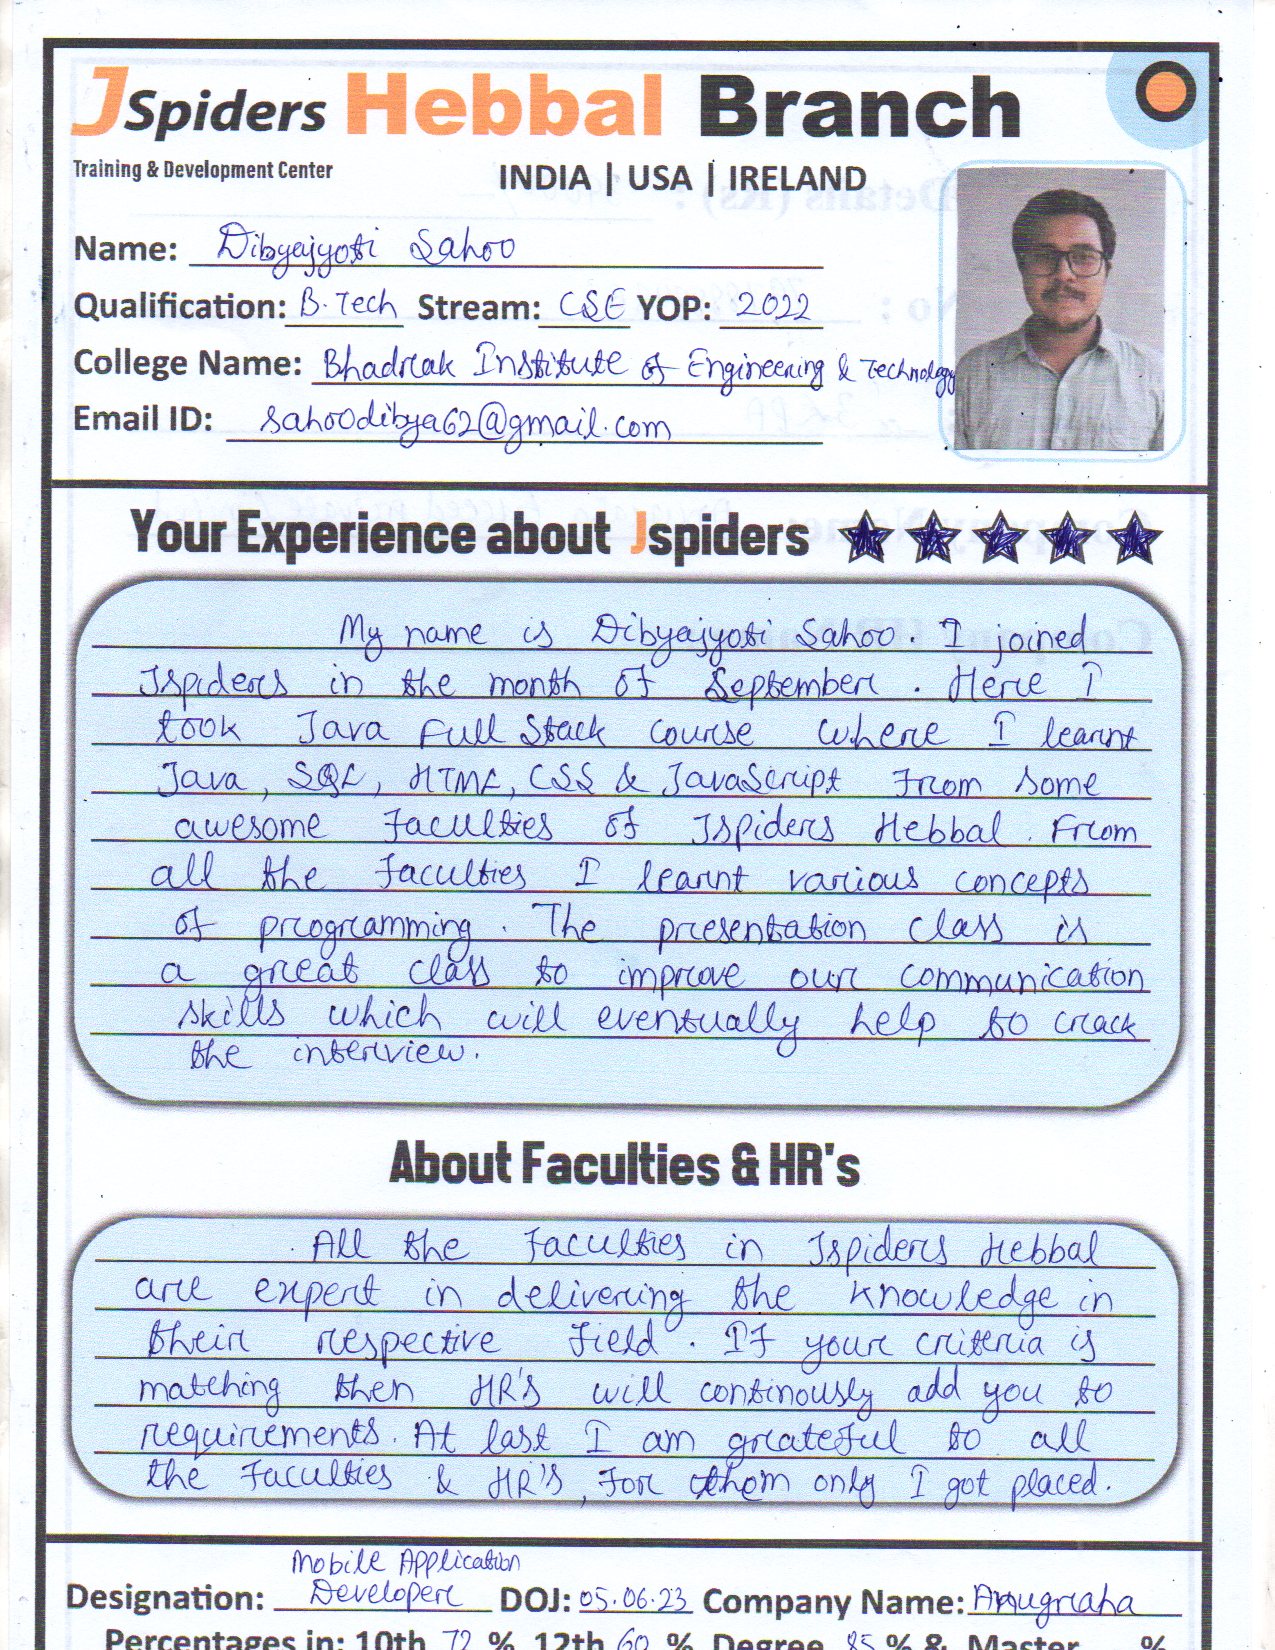 JSpiders Hebbal Branch
Training & Development Center
INDIA | USA | IRELAND
Name: Dibyajyoti Sahoo
Qualification: B.Tech Stream: CSE YOP: 2022
College Name: Bhadrak Institute of Engineering & Technology
Email ID: sahoodibya62@gmail.com
Your Experience about Jspiders
My name is Dibyajyoti Sahoo. I joined
Jspiders in the month of September. Here I
took Java Full Stack course where I learnt
Java, SQL, HTML, CSS & JavaScript from some
awesome faculties of Jspiders Hebbal. From
all the faculties I learnt various concepts
of programming. The presentation class is
a great class to improve our communication
skills which will eventually help to crack
the interview.
About Faculties & HR's
All the faculties in Jspiders Hebbal
are expert in delivering the knowledge in
their respective field. If your criteria is
matching then HR's will continously add you to
requirements. At last I am grateful to all
the faculties & HR's, for them only I got placed.
Mobile Application
Designation: Developer DOJ: 05.06.23 Company Name: Anugraha
Percentages in: 10th 72 % 12th 60 % Degree 85 % & Master %